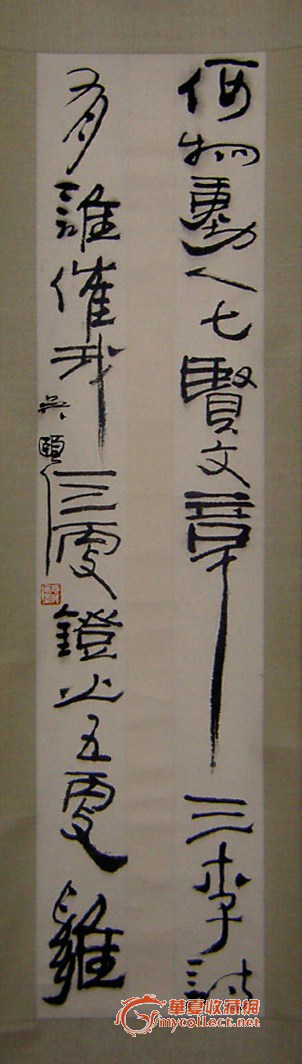 何物動人七賢文章三李詩
有誰催我三更鐙火五更雞
吳頤人
華夏收藏網
mycollect.net